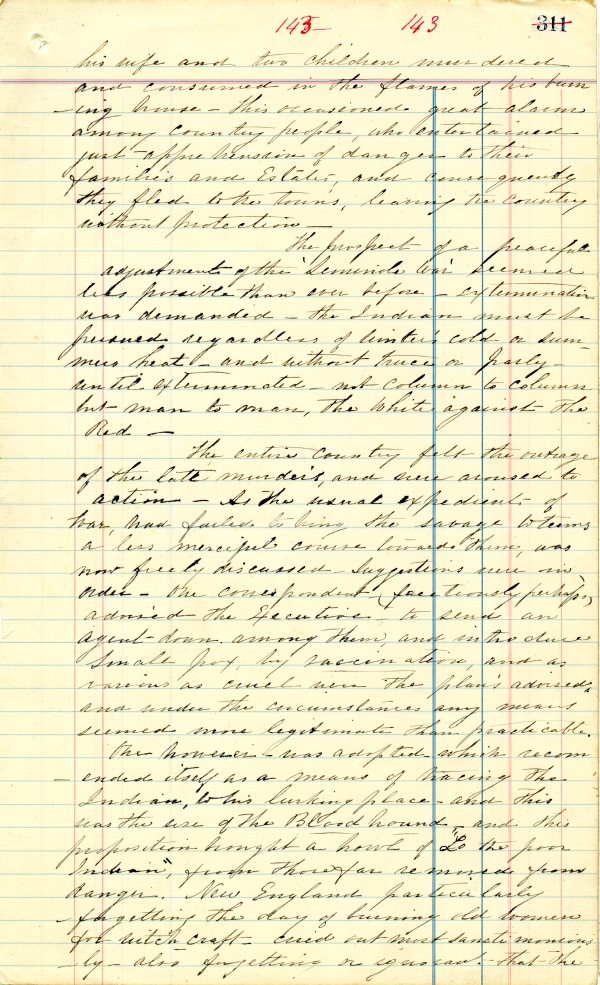 145 143 311
his wife and two children murdered
and consumed in the flames of his burn
-ing house - this occasioned great alarm
among Country people, who entertained
just apprehension of danger to their
families and Estates, and consequently
they fled to the towns, leaving the country
without protection -
The prospect of a peaceful
adjustment of the Seminole War seemed
less possible than ever before - extermination
was demanded - the Indian must be
persued regardless of winter's cold or sum
mers heat - and without truce or parly -
until exterminated - not column to column
but man to man, the White against the
Red -
The entire country felt the outrage
of the late murders, and were aroused to
action - As the usual expedients of
War, had failed to bring the savage to terms
a less merciful course towards them, was
now freely discussed - Suggestions were in
order - One correspondent (facetiously perhaps)
advised the Executive to send an
agent down among them, and introduce
Small pox, by vaccination, and as
various as cruel were the plans advised,
and under the circumstances any means
seemed more legitimate than practicable.
One however - was adopted - which recom
- ended itself as a means of tracing the
Indian, to his lurking place - and this
was the use of the Blood hound - and this
proposition brought a howl of "Lo the poor
Indian", from those far removed from
danger. New England particularly
- forgetting the day of burning old women
for witch craft - cried out most sanctimonious
- ly - also forgetting or ignorant - that the